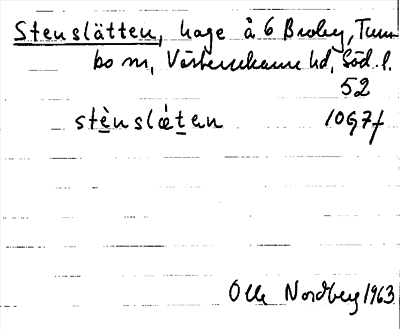 Stenslätten, hage å 6 Broby, Tum-
bo sn, Västerrekarne hd, Söd. l.
52
stènslǽtən 10G7f
Olle Nordberg 1963